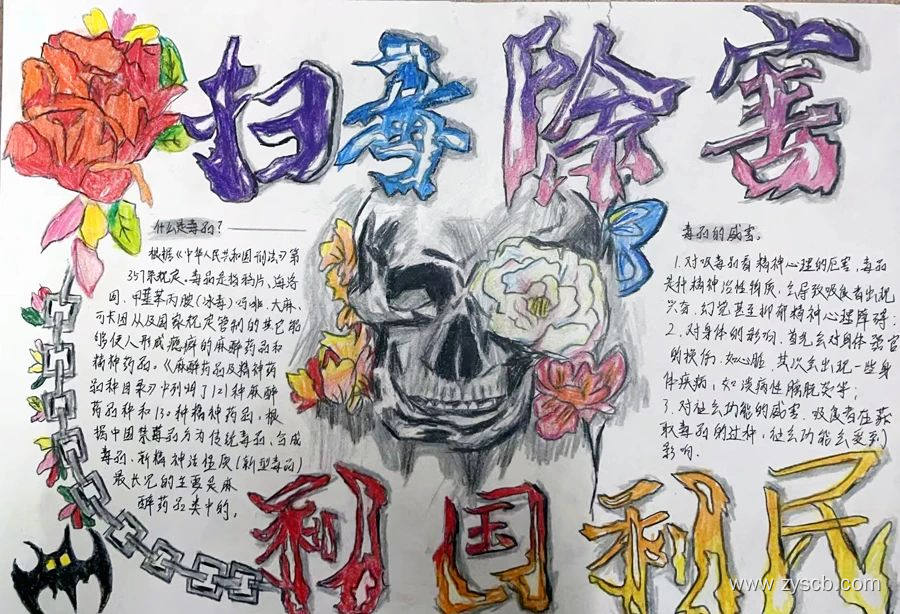 扫毒除害
什么是毒品？
根据《中华人民共和国刑法》第
357条规定，毒品是指鸦片、海洛
因、甲基苯丙胺（冰毒）吗啡、大麻、
可卡因以及国家规定管制的其它能
够使人形成瘾癖的麻醉药品和
精神药品。《麻醉药品及精神药
品种目录》中列明了121种麻醉
药品种和130种精神药品，根
据中国禁毒 分为传统毒品、合成
毒品、新精神活性质（新型毒品）
最长见的主要是麻
醉药品类中的。
毒品的威害。
1.对吸毒品者精神心理的厄害，毒品
是种精神活性物质，会导致吸食者出现
兴奋、幻觉甚至抑郁精神心理障碍；
2.对身体的影响，首先会对身体器官
的损伤，如心脏，其次会出现一些身
体疾病，如 病性膀胱炎等；
3.对社会功能的威害，吸食者在获
取毒品的过种，社会功能会受到
影响.
利国利民
www.zyscb.com